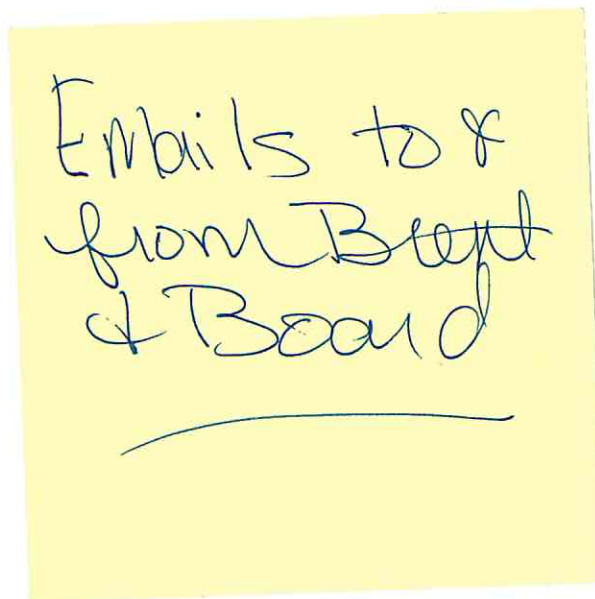 Emails to &
from Brent
& Board